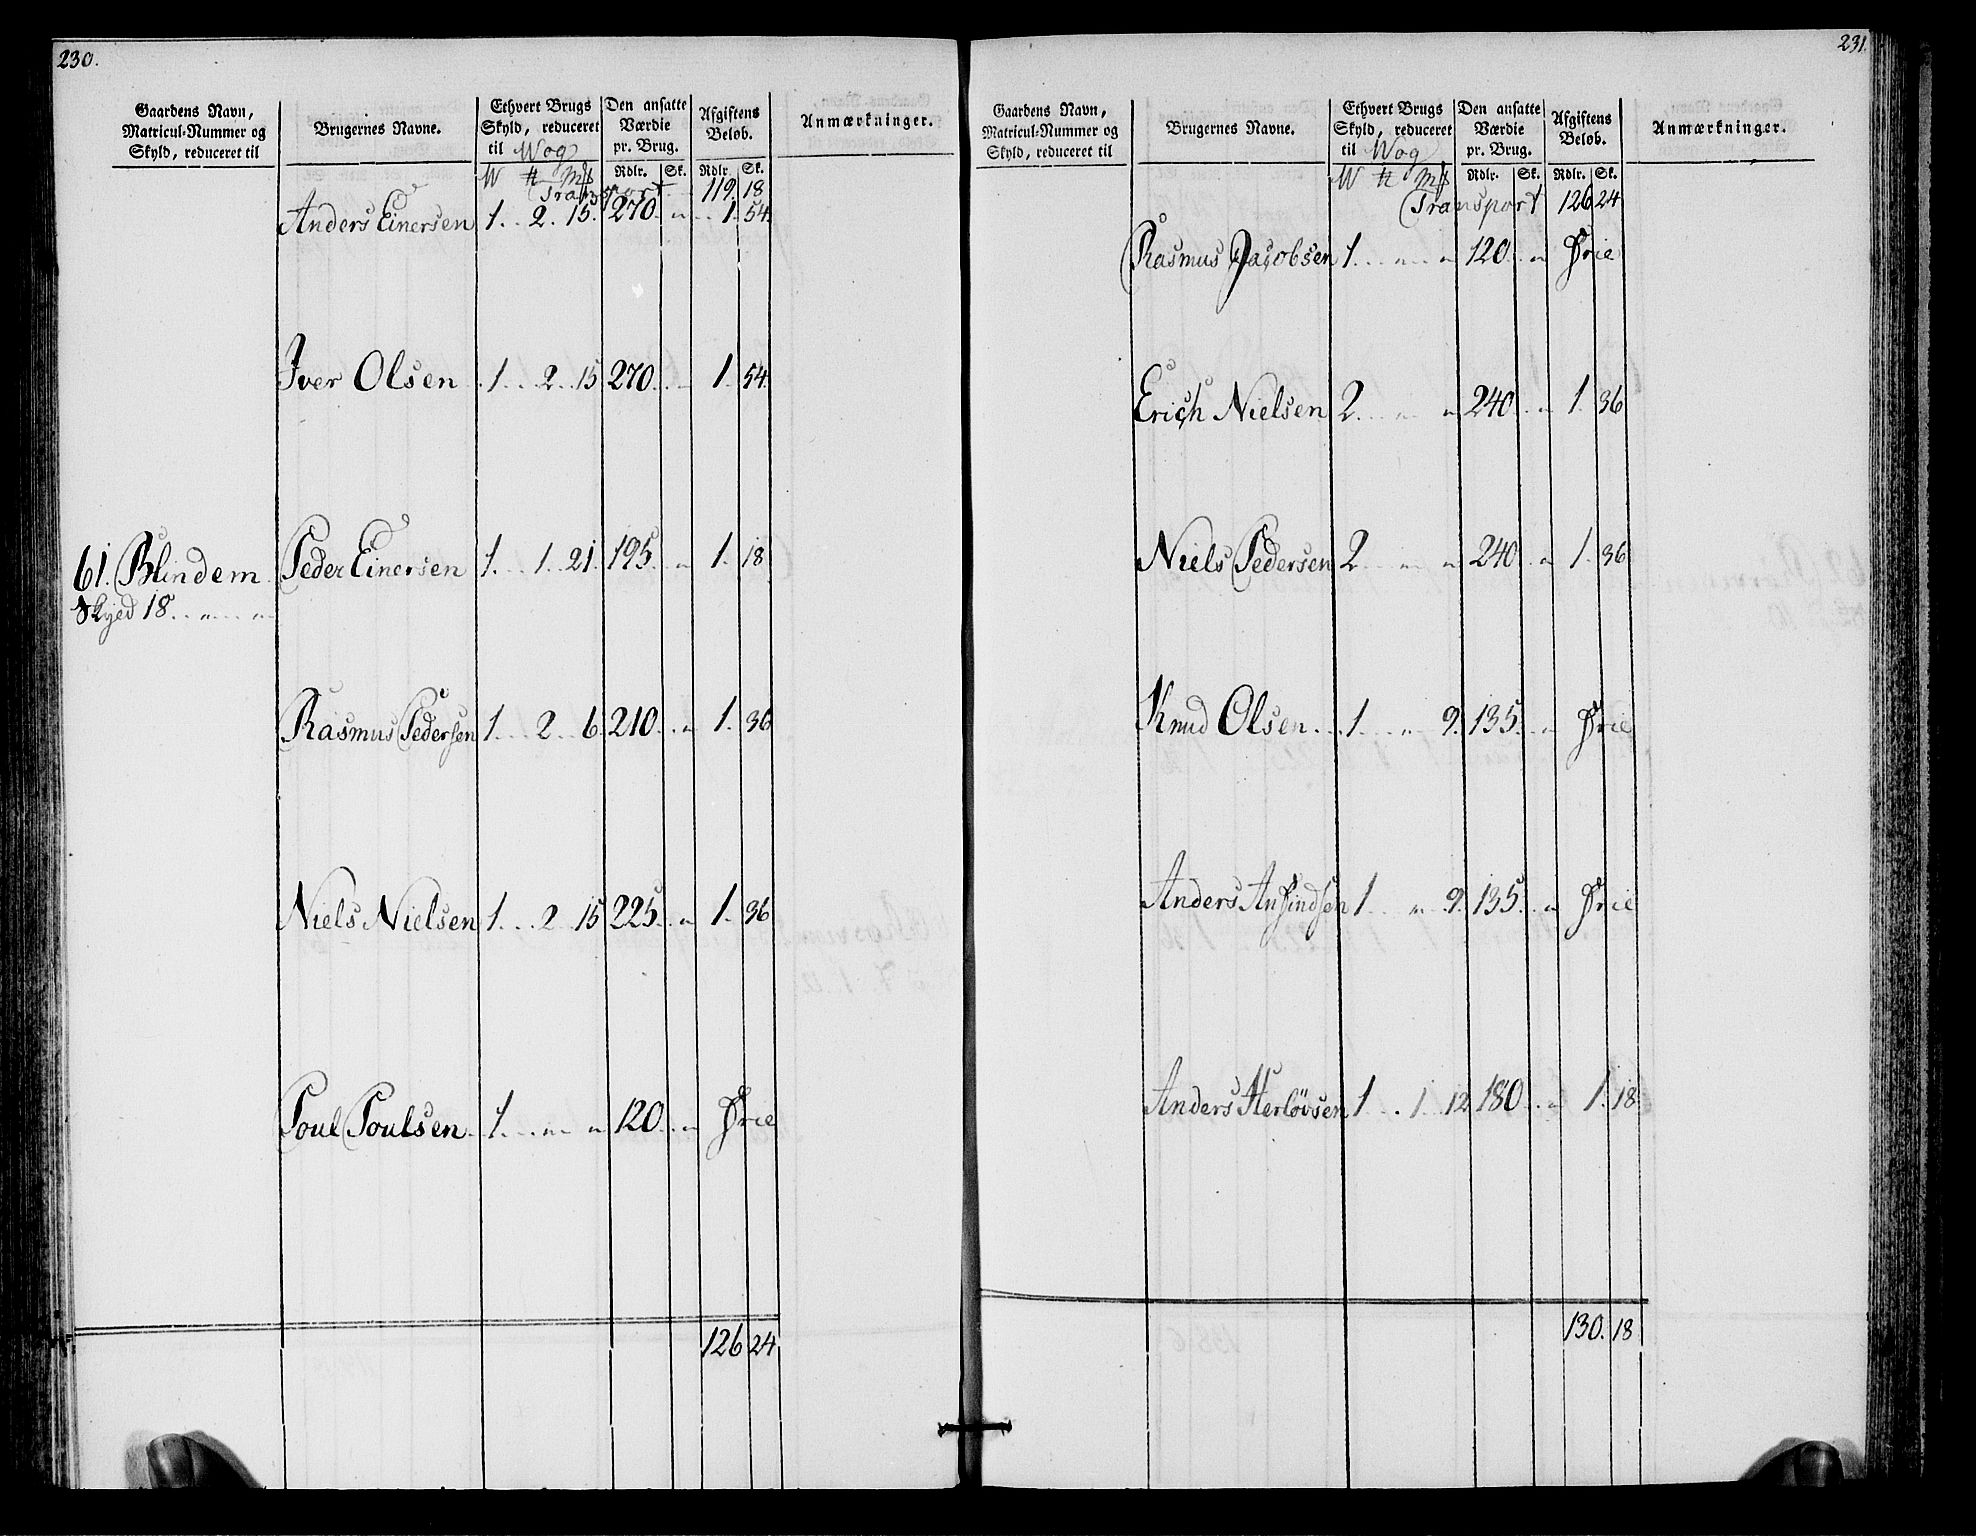 230.
Gaardens Navn, Matricul-Nummer og Skyld, reduceret til
Brugernes Navne.
Ethvert Brugs Skyld, reduceret til Wog
Den ansatte Værdie pr. Brug.
Afgiftens Beløb.
Anmærkninger.
W # m# Rdlr. Sk. Rdlr. Sk.
Transport 119 18
Anders Einersen 1 2 15 270 " 1 54
Iver Olsen 1 2 15 270 " 1 54
61. Blindem Peder Einersen 1 1 21 195 " 1 18
Skyld 18 " "
Rasmus Pedersen 1 2 6 210 " 1 36
Niels Nielsen 1 2 15 225 " 1 36
Poul Poulsen 1 " " 120 " Frie
126 24
231.
Gaardens Navn, Matricul-Nummer og Skyld, reduceret til
Brugernes Navne.
Ethvert Brugs Skyld, reduceret til Wog
Den ansatte Værdie pr. Brug.
Afgiftens Beløb.
Anmærkninger.
W # m# Rdlr. Sk. Rdlr. Sk.
Transport 126 24
Rasmus Jacobsen 1 " " 120 " Frie
Erich Nielsen 2 " " 240 " 1 36
Niels Pedersen 2 " " 240 " 1 36
Knud Olsen 1 " 9 135 " Frie
Anders Ansindsen 1 " 9 135 " Frie
Anders Herlövsen 1 1 12 180 " 1 18
130. 18